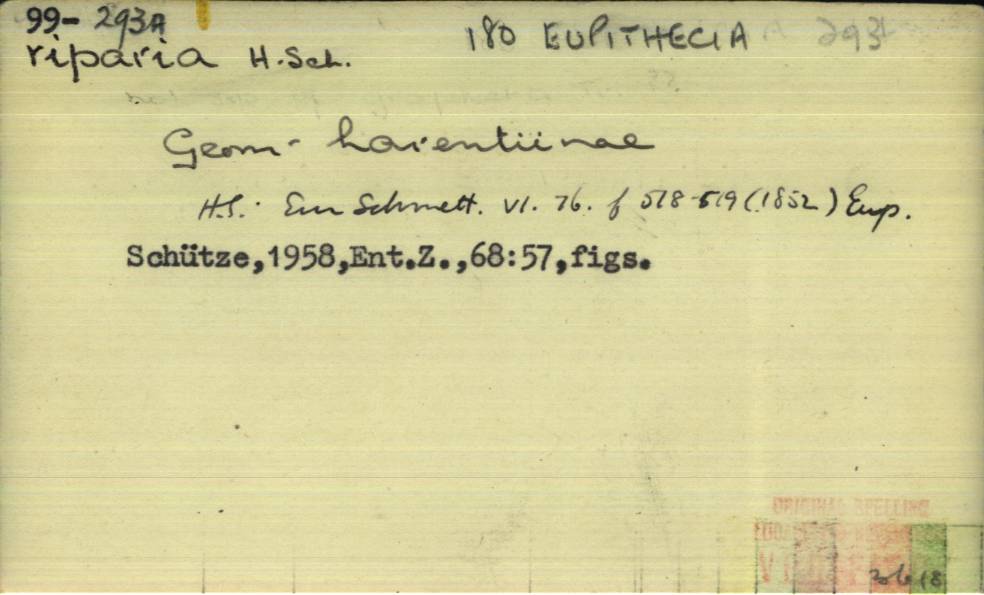 99- 293A
180 EUPITHECIA
riparia H.Sch.
Geom- Larentiinae
H.S. Eur Schmett. VI. 76. f 518-519 (1852) Eup.
Schütze,1958,Ent.Z.,68:57,figs.
ORIGINAL SPELLING